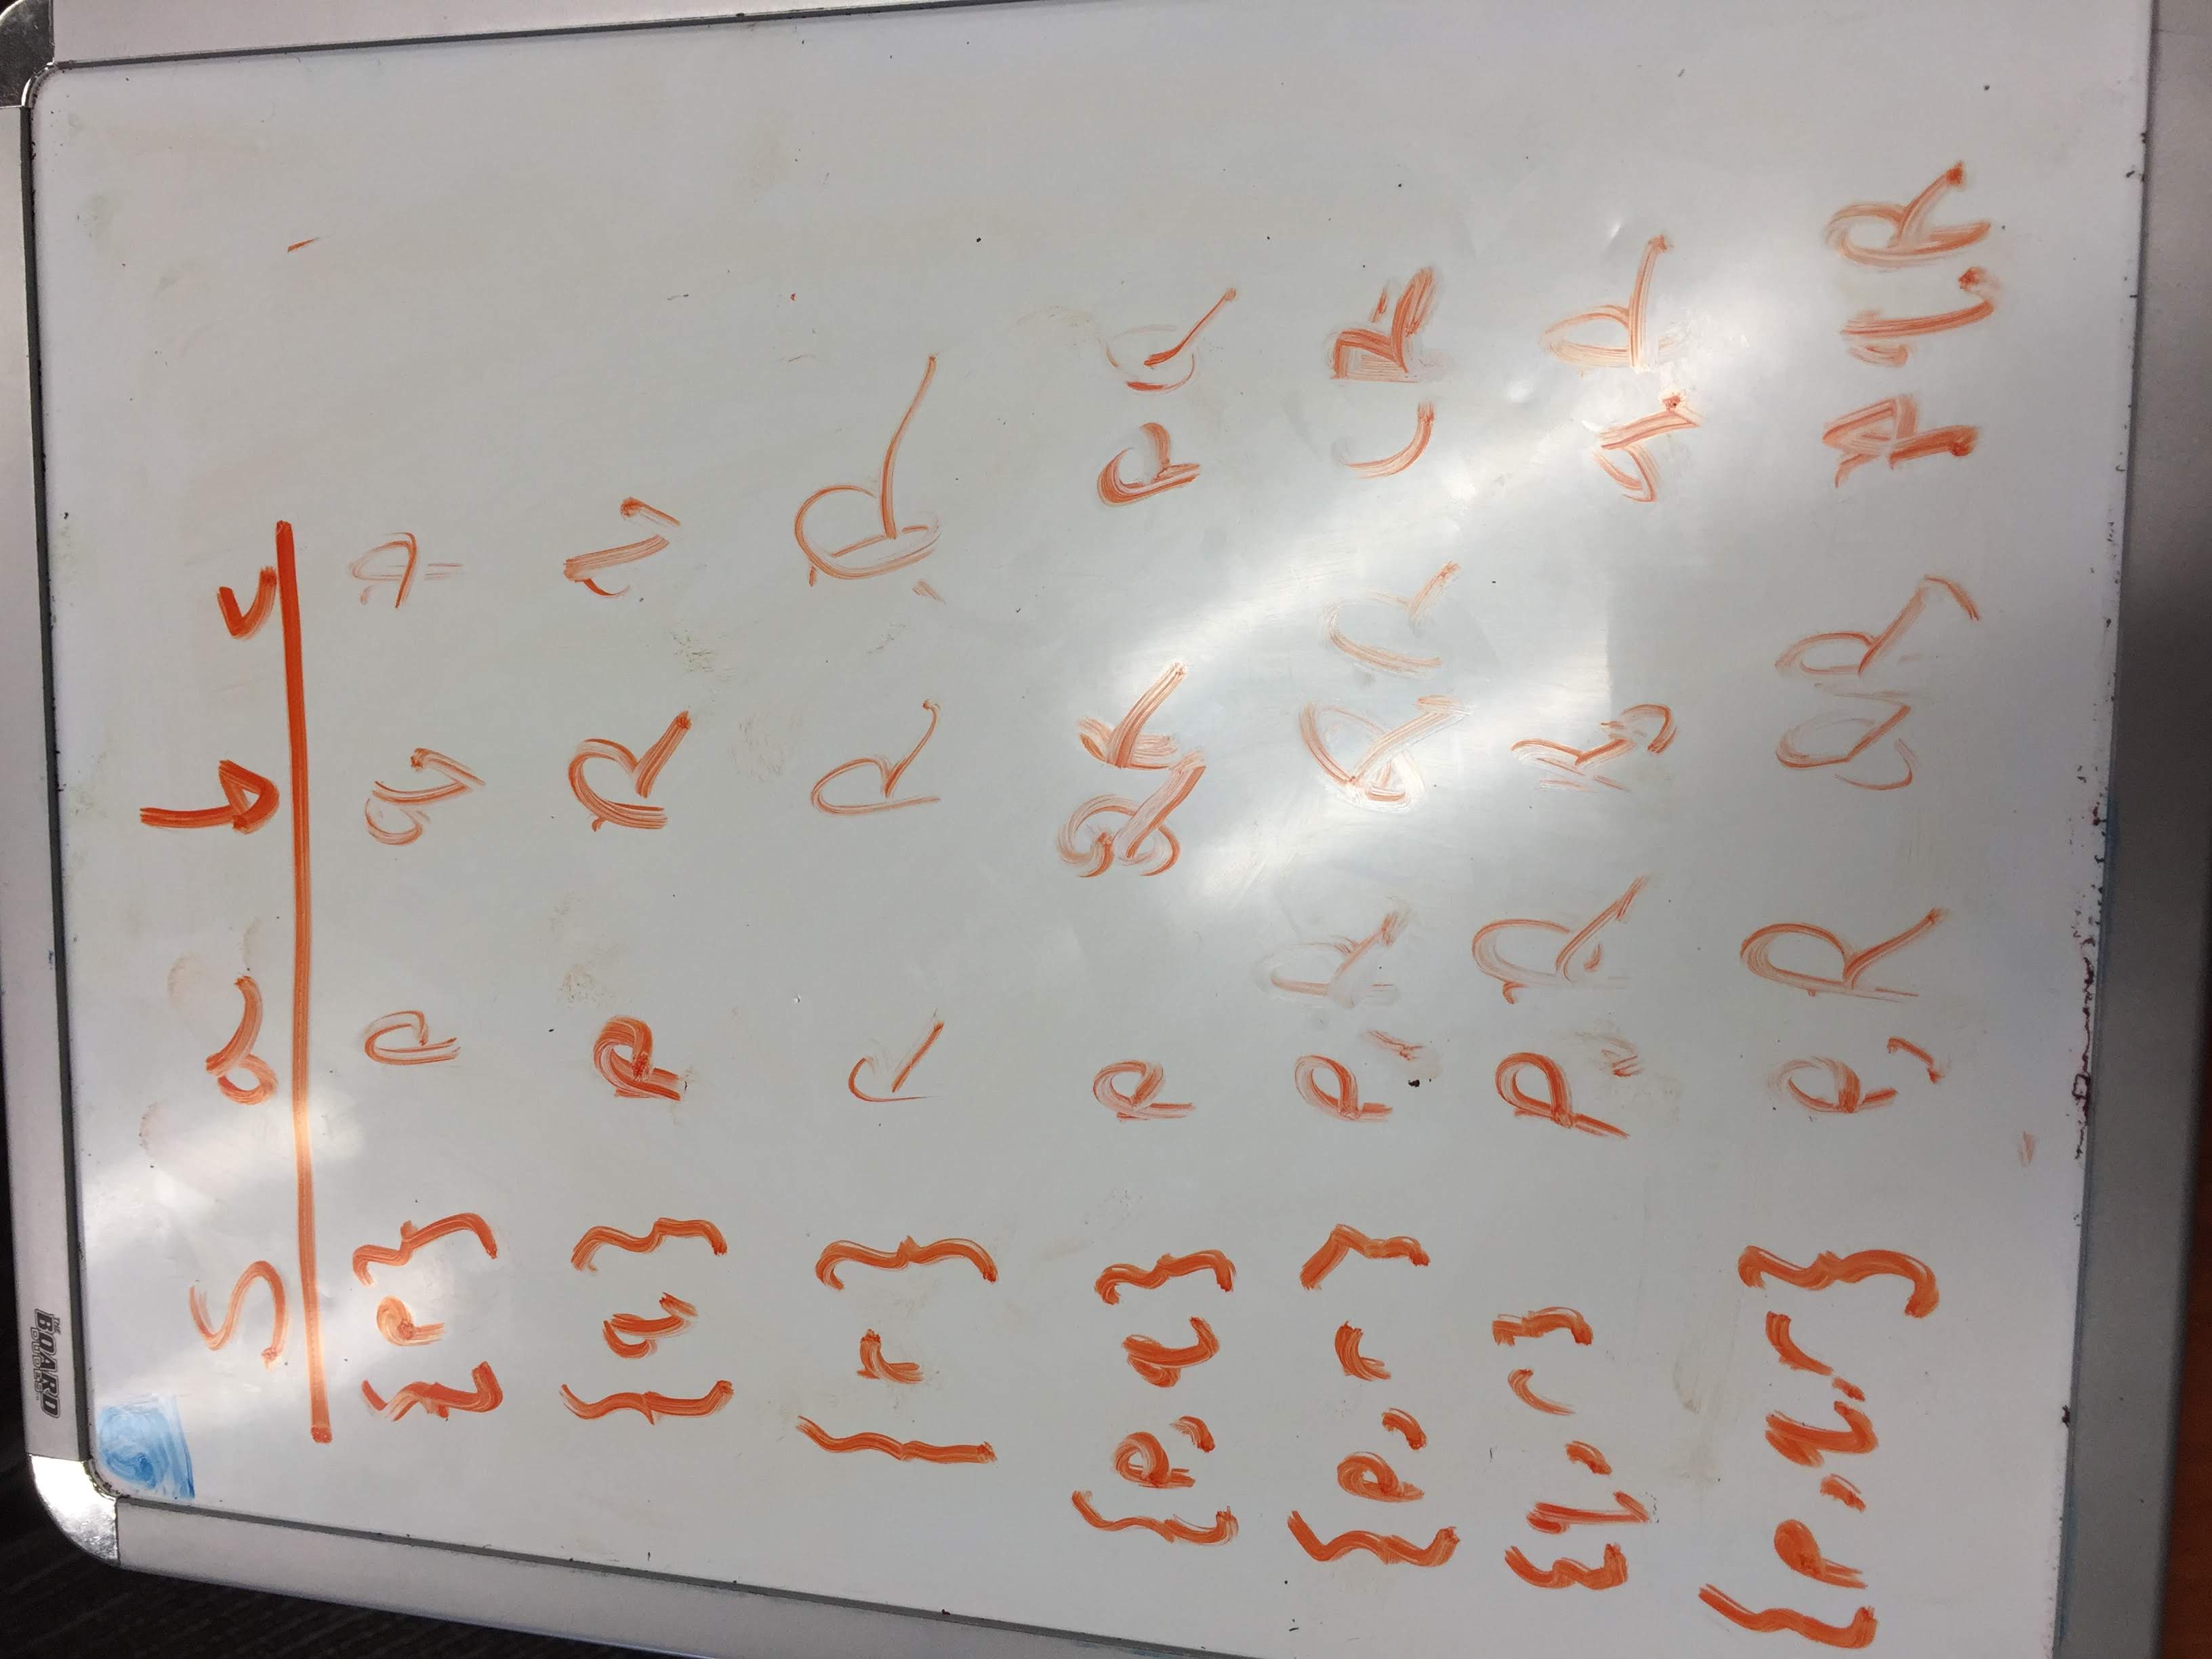 THE BOARD DUDES
S a b c
{p} p q p
{q} p R q
{r} R R R
{p,q} p QR PQ
{p,r} P,R Q,R R
{q,r} P,R R q,R
{p,q,r} P,R QR P q,R